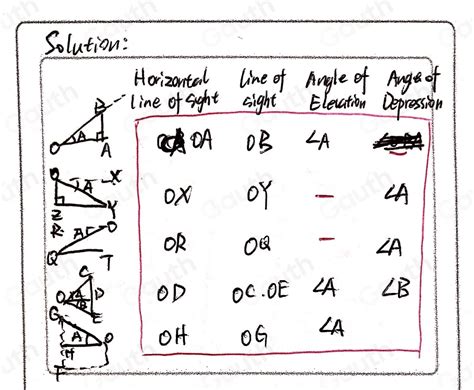 Solution:
Horizontal Line of Angle of Angle of
line of sight sight Elevation Depression
B
O A A OA OB ∠A
O A X
Z Y OX OY - ∠A
R A O
Q T OR OQ - ∠A
C
O A B D E OD OC.OE ∠A ∠B
G
A O H OH OG ∠A
F
Gauth